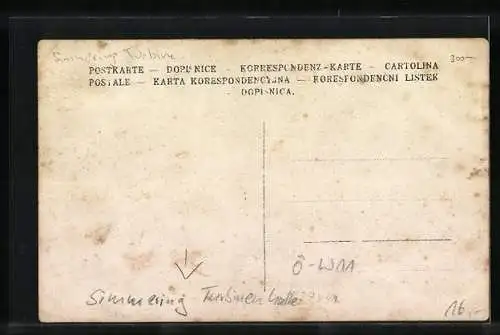 Simmering Turbine
300-
POSTKARTE — DOPISNICE - KORRESPONDENZ-KARTE - CARTOLINA
POSTALE — KARTA KORESPONDENCYJNA — KORESPONDENCNI LISTEK
- DOPISNICA.
Ö-W11
Simmering Turbinenhalle
16.-